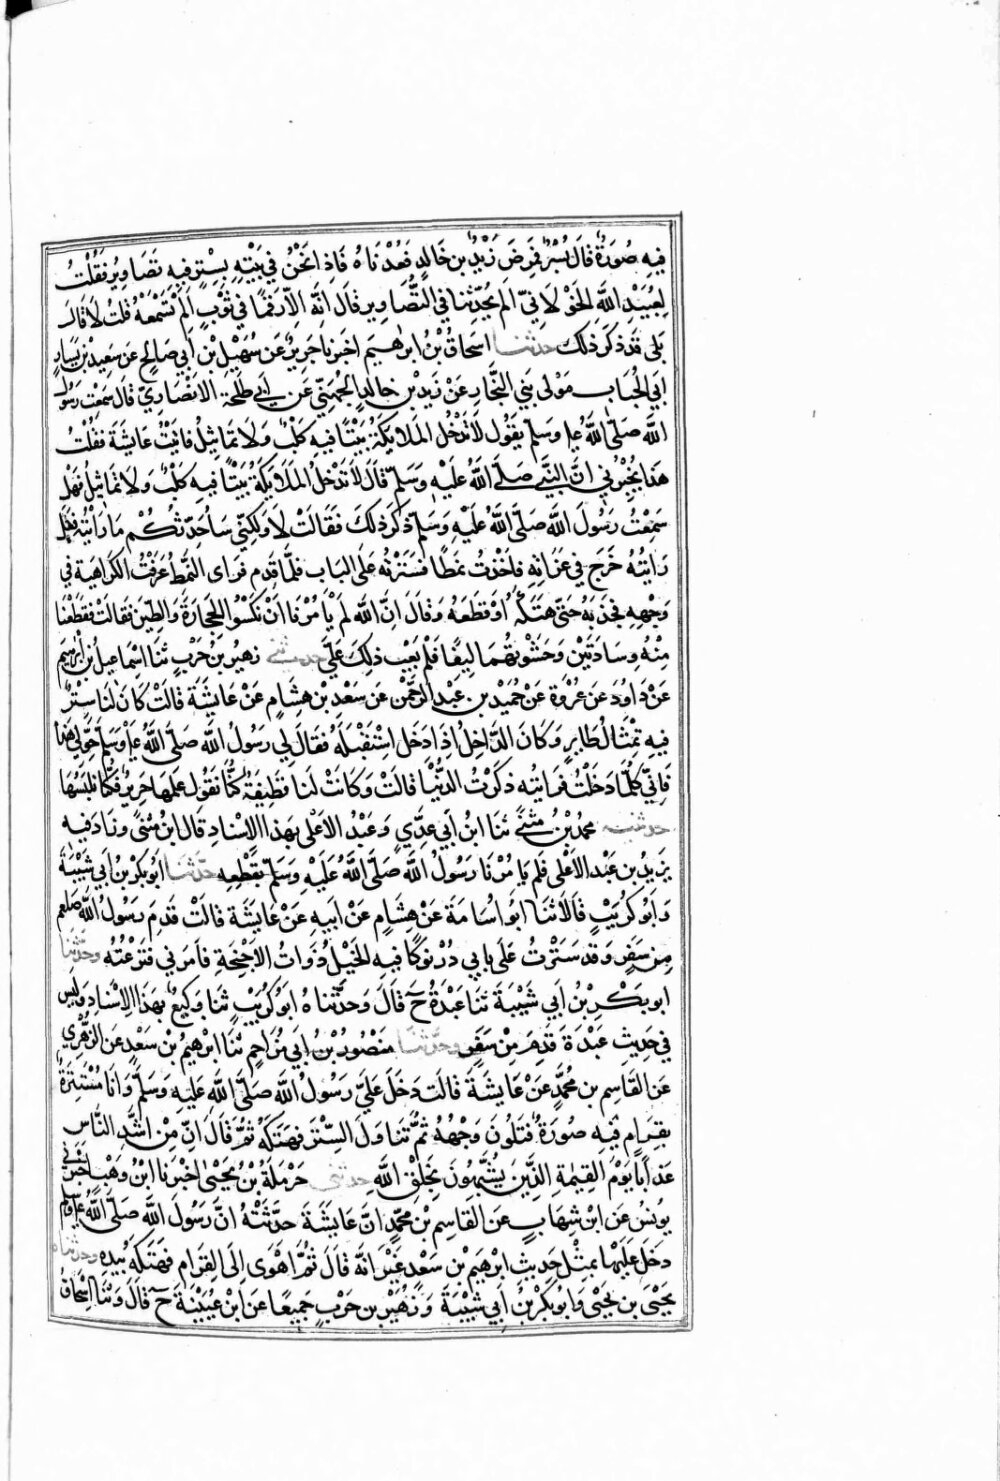 فيه صُورَةٌ قال بُسْرٌ فمرضَ زَيْدُ بن خَالدٍ فعُدْنَاه فاذا نَحْنُ في بَيْتِهِ بسِتْرٍ فيه تصَاويرُ فقُلْتُ
لِعُبَيْدِ اللَّه الخَوْلَانِيّ الم يُحَدِّثنا في التَّصَاوير قَالَ انَّه الَّا رَقْمًا في ثَوْبٍ اَلَمْ تَسْمَعْهُ قُلتُ لا قَالَ
بَلَى قَد ذَكرَ ذلك حدثنا اسحَاقُ بْنُ ابراهيمَ اخبرنا جَرِيرٌ عَن سُهَيْل بْنِ ابي صَالحٍ عَن سَعِيد بْن يسَارٍ
ابي الحُبَابِ مَوْلَى بَنِي النَّجَّارِ عَنْ زَيدِ بْنِ خالدٍ الجُهَنِيِّ عَن ابي طَلحَة الانصَارِيّ قَالَ سمعت رسُولَ
اللَّه صَلَّى اللَّهُ عليه وسَلم يَقُول لا تَدْخُلُ المَلَايكَةُ بَيْتًا فيه كَلْبٌ وَلَا تمَاثيلُ فَاتَيْتُ عَايشَةَ فَقُلْتُ
هَذا يُخْبِرُني انَّ النَّبِيَّ صَلَّى اللَّهُ عَلَيْهِ وَسَلَّم قَالَ لَا تَدْخُلُ المَلَايكَةُ بَيْتًا فيه كَلْبٌ وَلَا تماثيلُ فَهَل
سَمِعْتِ رَسُولَ اللَّه صَلَّى اللَّهُ عَلَيْهِ وَسَلَّم ذكَرَ ذلكَ فقَالَتْ لَا وَلكِنّي سَأُحَدّثكُمْ مَا رَأَيْتُهُ فَعَلَ
رَايتُهُ خَرَجَ في غَزَاتِه فاخَذْتُ نَمَطًا فسَتَرْتُه عَلَى البَاب فَلَمَّا قَدِم فرَاى النَّمَطَ عَرَفْتُ الكَرَاهِيَة في
وَجْهِهِ فجَذَبَهُ حَتَّى هَتَكَهُ اَوْ قَطَعَهُ وَقَالَ اِنَّ اللَّه لَمْ يَأمُرْنا اَنْ نَكْسُوَ الحِجَارَةَ وَالطِّينَ قَالَتْ فقَطَعْنَا
مِنْهُ وسَادَتَيْنِ وَحَشَوْتُهُمَا لِيفًا فَلَمْ يَعِبْ ذلِكَ عَلَيَّ حدثني زهيرُ بن حَرْبٍ ثنا اِسْماعيلُ بن ابْرهيم
عَنْ دَاوُدَ عَن عَزْرَةَ عَنْ حُمَيْدِ بن عَبْدِ الرَّحْمٰن عَن سَعْدِ بْن هِشامٍ عَنْ عَايشَةَ قَالَتْ كَانَ لَنا سِتْرٌ
فيه تِمْثَالُ طَايرٍ وَكَانَ الدَّاخِلُ اِذَا دَخَلَ اسْتَقْبَلَهُ فقَالَ لِي رَسُولُ اللَّه صَلَّى اللَّهُ عليه وسَلم حَوِّلي هَذا
فَاِنّي كُلَّمَا دَخَلْتُ فرَايتُه ذكَرْتُ الدُّنْيَا قَالتْ وَكَانتْ لنَا قطِيفَةٌ كُنَّا نَقُول عَلَمُهَا حَرِيرٌ فكُنَّا نلبَسُهَا
حدثنيه محمدُ بْنُ مثَنَّى ثنا ابْنُ ابي عَدِيّ وَعَبْدُ الاَعْلَى بهَذا الاِسْنادِ قَال ابن مُثنَّى وَزَادَ فيه
يَزِيدُ بن عَبْدِ الاَعْلى فلم يَامُرْنَا رَسُولُ اللَّه صَلَّى اللَّهُ عَلَيْهِ وسَلَّم بقَطْعِهِ حدّثنا ابُو بَكرِ بْنُ ابي شَيْبَةَ
وَابُو كُرَيْبٍ قَالَا ثنَا ابُو اُسَامَة عَنْ هِشَامٍ عَنْ ابيه عَنْ عَايشَة قالَتْ قَدِمَ رَسُولُ اللَّه صلعم
مِن سَفَرٍ وَقَد سَتَرْتُ عَلَى بَابي دُرْنُوكًا فيه الخَيْلُ ذَوَاتُ الاَجْنِحَةِ فاَمَرَني فنَزَعْتُه وحدّثنا
ابو بَكْرِ بْنُ ابي شَيْبَةَ ثنَا عَبْدَةُ ح قَالَ وَحَدَّثناهُ ابو كُرَيْبٍ ثنَا وَكيعٌ بهَذا الاِسْنادِ وَليس
في حَدِيث عَبْدَةَ قَدِمَ مِنْ سَفَرٍ وحدّثنا مَنْصُورُ بْنُ ابي مُزَاحِمٍ ثنَا ابرْهيمُ بْنُ سَعْدٍ عَن الزُّهْرِي
عَن القَاسِمِ بن مُحَمَّدٍ عَنْ عَايشَةَ قَالَت دَخَلَ عَلَيَّ رَسُولُ اللَّه صَلَّى اللَّه عَلَيْهِ وسَلَّم وَانَا مُسْتَتِرَةٌ
بقرَامٍ فيه صُورَةٌ فتَلَوَّنَ وَجْهُهُ ثُمَّ تنَاوَلَ السِّتْرَ فهَتَكَهُ ثُمَّ قَالَ اِنّ مِنْ اَشَدِّ النَّاسِ
عَذابًا يَوْمَ القِيمَةِ الَّذِينَ يُشَبِّهُونَ بخَلْقِ اللَّهِ حدثني حَرْمَلَةُ بْنُ يَحْيَى اخْبرَنا ابْنُ وَهْبٍ اخبرني
يونُسُ عَن ابْن شِهَابٍ عَنِ القَاسِم بْن مُحَمَّدٍ اَنَّ عَايشَةَ حَدَّثَتْهُ انَّ رَسُولَ اللَّه صَلَّى اللَّهُ عليه وسلم
دخَلَ عَلَيْها بمِثْلِ حَدِيث ابْرهيمَ بْن سَعْدٍ غَيْرَ انَّه قَالَ ثُمَّ اَهْوَى اِلَى القِرَام فهَتَكَهُ بيَدِهِ وحدثناه
يَحْيَى بن يَحْيَى وَابُو بَكْرِ بْنُ اَبي شَيْبَةَ وَزُهَيْرُ بن حَرْبٍ جَمِيعًا عَن ابْن عُيَيْنَةَ ح قَالَ وثَنَا اِسْحَاقُ